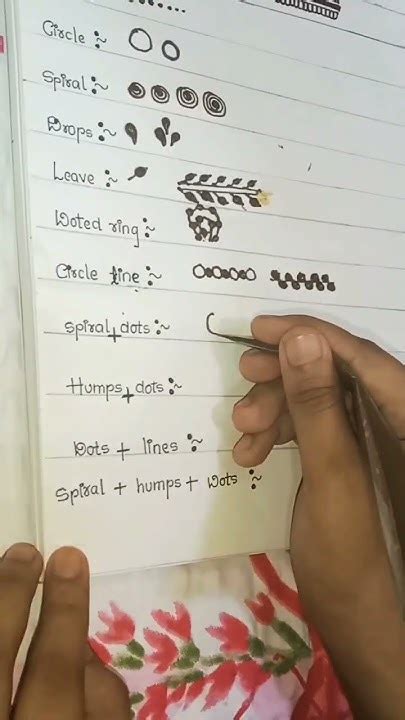 Circle :~
Spiral :~
Drops :~
Leave :~
Woted ring :~
Circle line :~
Spiral + dots :~
Humps + dots :~
Dots + lines :~
Spiral + humps + Wots :~